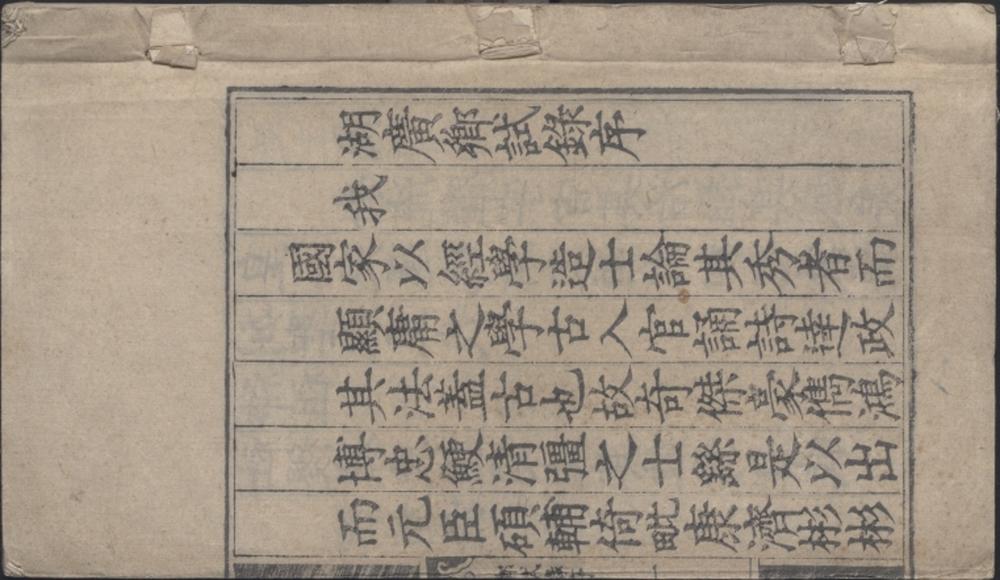 湖廣鄉試錄序
我
國家以經學造士論其秀者而
顯庸之學古入官誦詩達政
其法蓋古也故奇傑豪儁鴻
博忠鯁清彊之士繇是以出
而元臣碩輔倚毗康濟彬彬